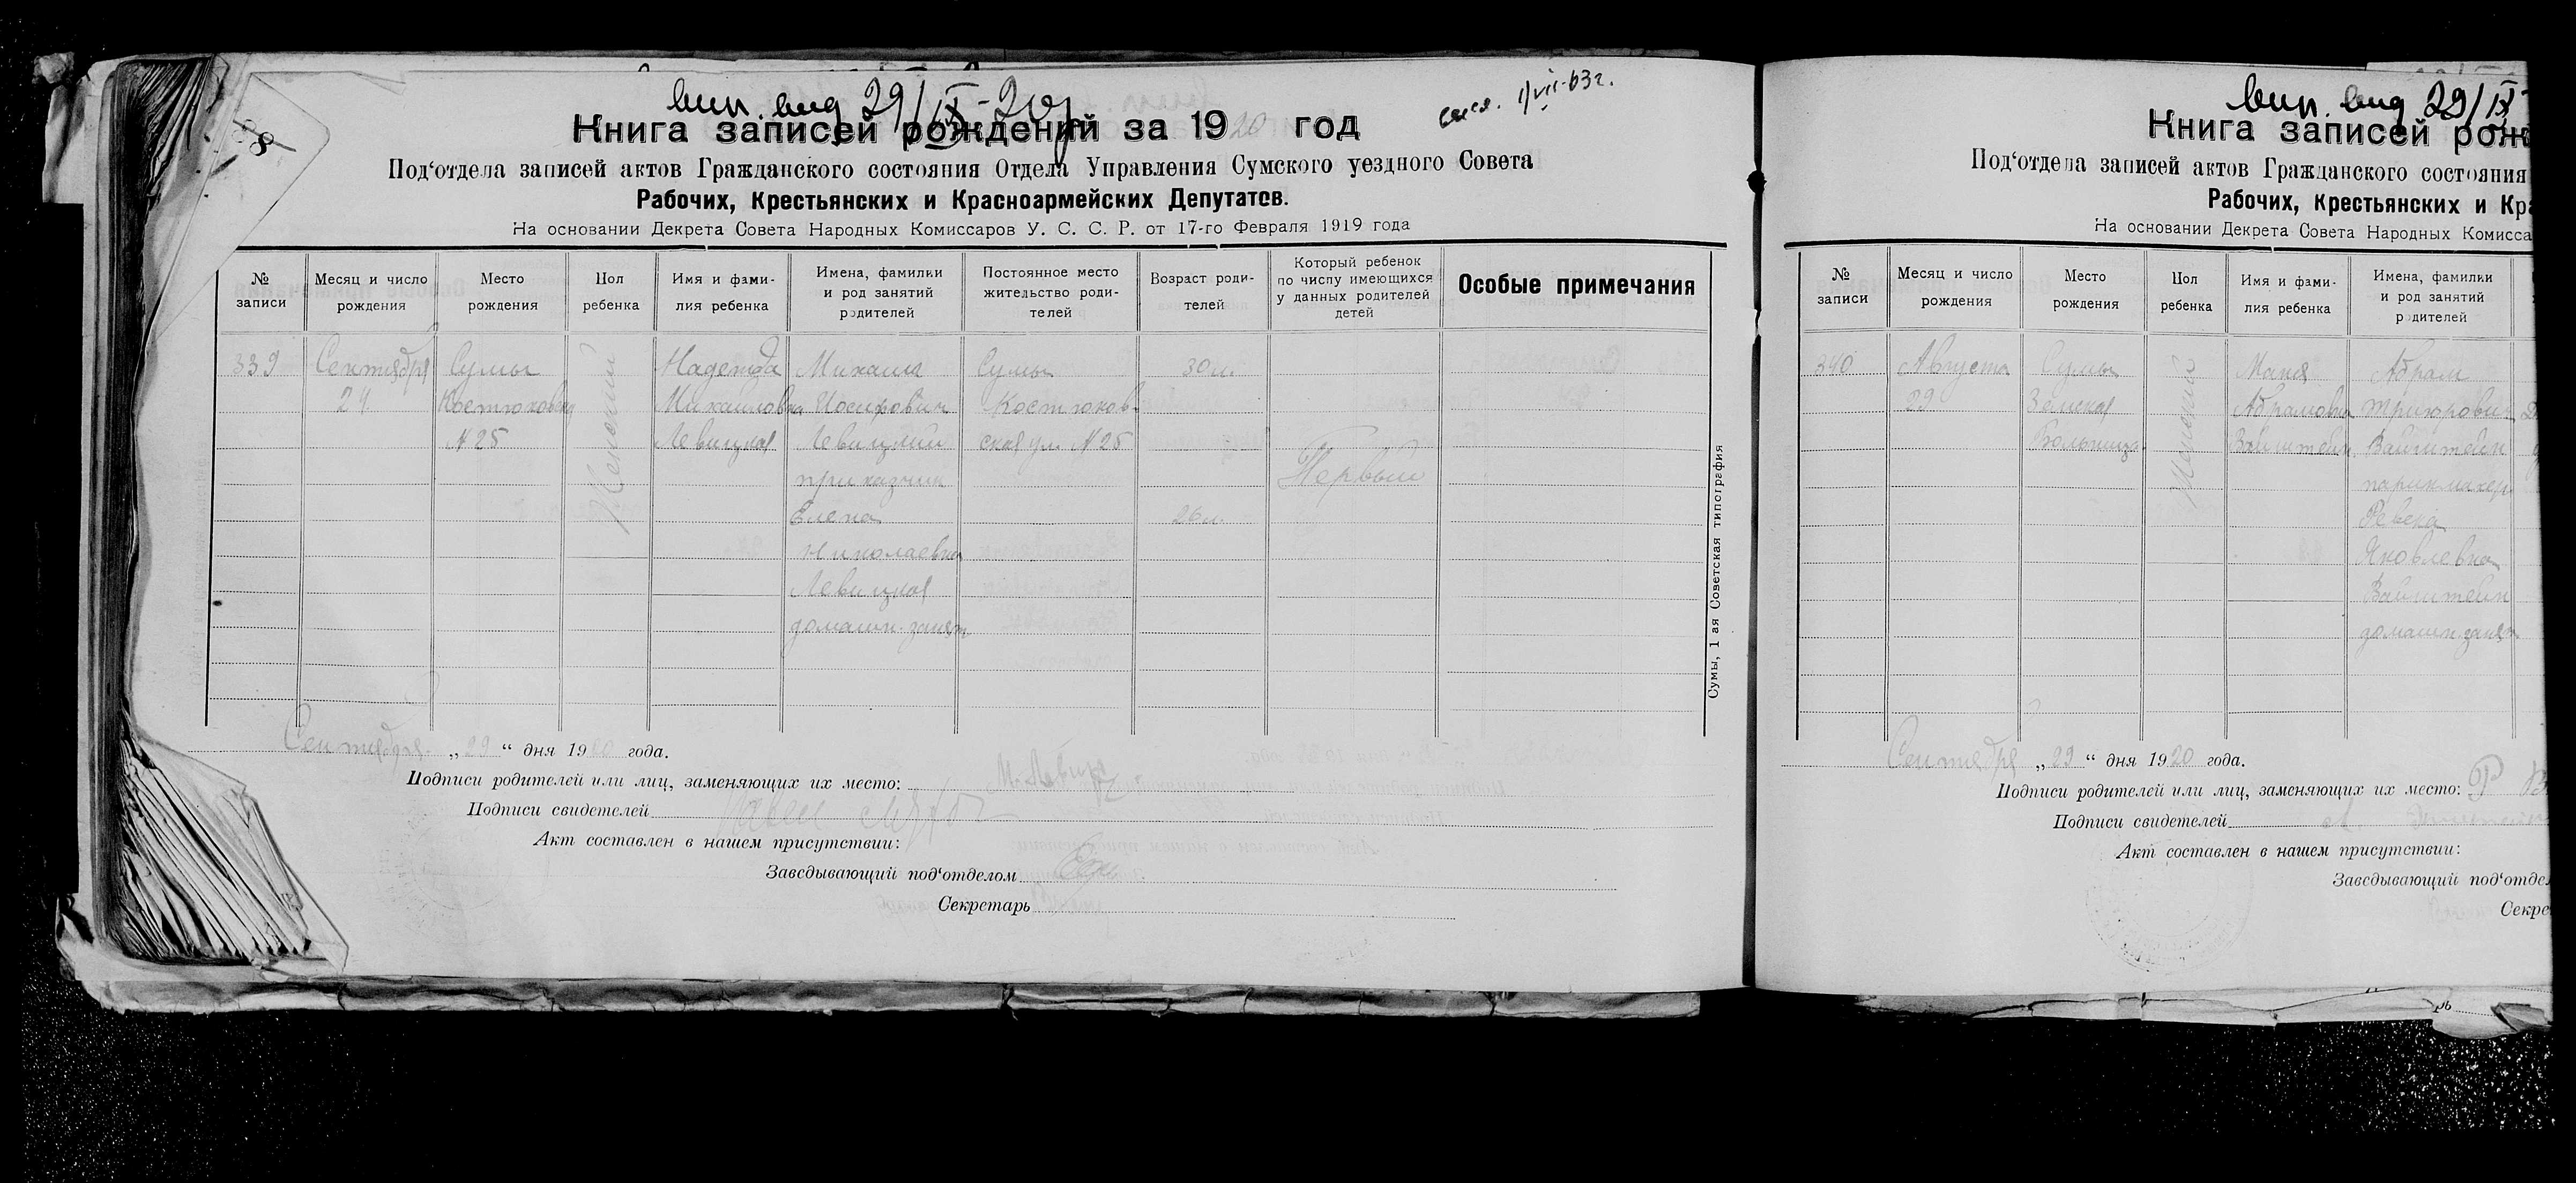 вип. вид 29/IX-20р
свід. 1/VII-63г.
Книга записей рождений за 1920 год
Под‘отдела записей актов Гражданского состояния Отдела Управления Сумского уездного Совета
Рабочих, Крестьянских и Красноармейских Депутатов.
На основании Декрета Совета Народных Комиссаров У. С. С. Р. от 17-го Февраля 1919 года
№ записи
Месяц и число рождения
Место рождения
Пол ребенка
Имя и фами-
лия ребенка
Имена, фамилии
и род занятий
родителей
Постоянное место
жительство роди-
телей
Возраст роди-
телей
Который ребенок
по числу имеющихся
у данных родителей
детей
Особые примечания
339
Сентября
24
Сумы
Костюковск
№ 25
Женский
Надежда
Михайловна
Левицкая
Михаил
Иосифович
Левицкий
приказчик
Елена
Николаевна
Левицкая
домашн. занят
Сумы
Костюков-
ская ул. № 25
30 л.
26 л.
Первый
Сумы, 1 ая Советская типография
Сентября „29“ дня 1920 года.
Подписи родителей или лиц, заменяющих их место: М. Левиц
Подписи свидетелей
Акт составлен в нашем присутствии:
Заведывающий под‘отделом
Секретарь
вип. вид 29/IX-
Книга записей рож
Под‘отдела записей актов Гражданского состояния
Рабочих, Крестьянских и Кра
На основании Декрета Совета Народных Комисса
№ записи
Месяц и число рождения
Место рождения
Пол ребенка
Имя и фами-
лия ребенка
Имена, фамилии
и род занятий
родителей
340
Августа
29
Сумы
Земская
Больница
Женский
Маня
Абрамовна
Вайнштейн
Абрам
Вайнштейн
парикмахер
Ревека
Яковлевна
Вайнштейн
домашн. занят
Сентября „29“ дня 1920 года.
Подписи родителей или лиц, заменяющих их место: Р
Подписи свидетелей
Акт составлен в нашем присутствии:
Заведывающий под‘отдел
Секре